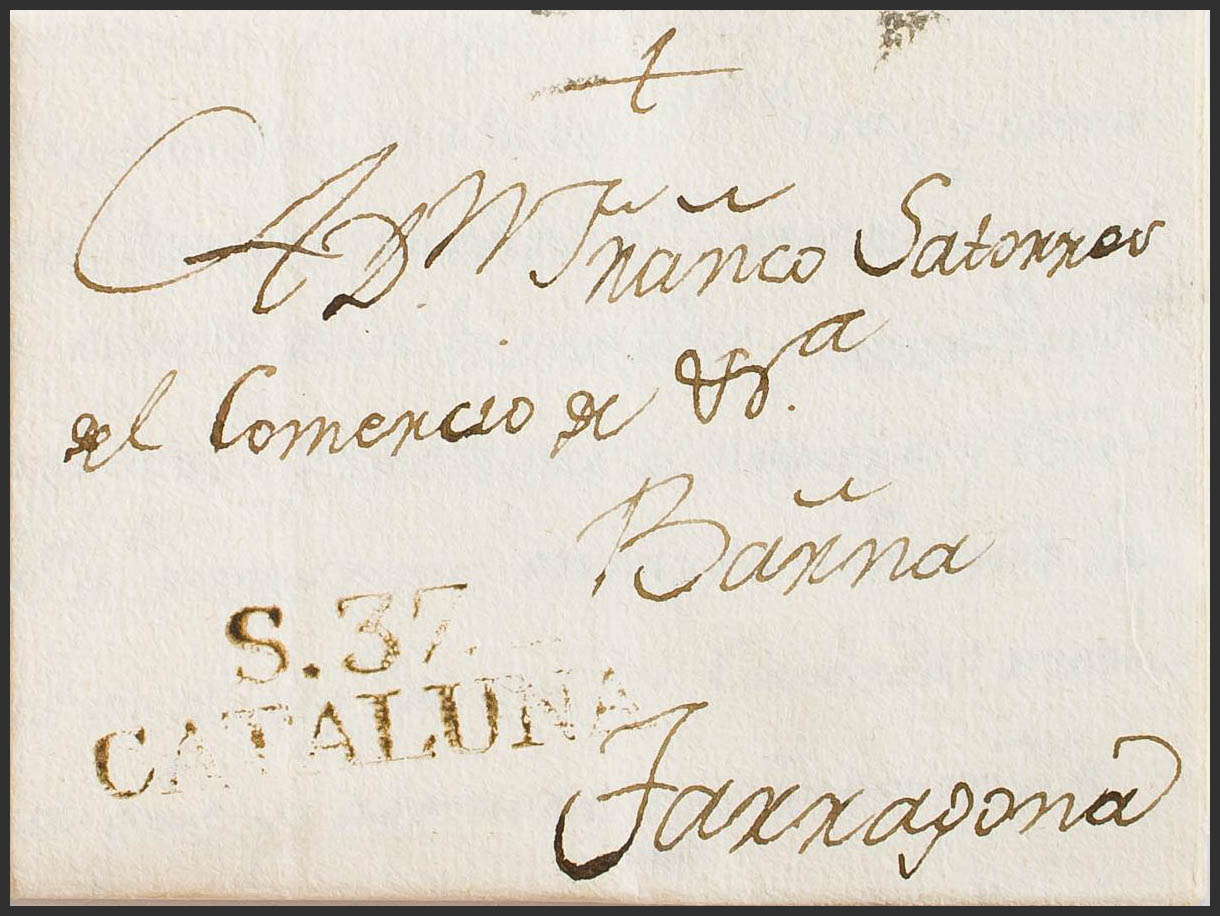 A D.n Franco Satorres
del Comercio de
Barña
S. 37
CATALUÑA
Tarragona